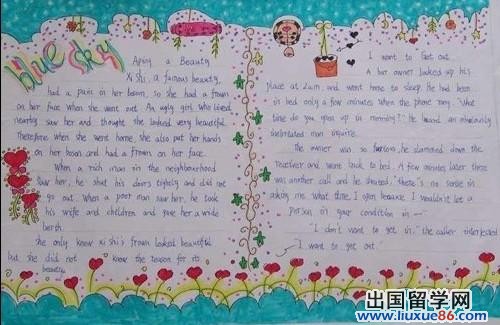 blue sky
Aping a Beauty
Xi Shi, a famous beauty,
had a pain in her bosom, so she had a frown
on her face when she went out. An ugly girl who lived
nearby saw her and thought she looked very beautiful.
Therefore when she went home, she also put her hands
on her bosom and had a frown on her face.
When a rich man in the neighbourhood
saw her, he shut his doors tightly and did not
go out. When a poor man saw her, he took
his wife and children and gave her a wide
berth.
She only knew Xi Shi's frown looked beautiful
but she did not know the reason for its
beauty.
I want to Get out
A bar owner locked up his
place at 2am and went home to sleep. He had been
in bed only a few minutes when the phone rang. "What
time do you open up in morning?" He heard an obviously
inebriated man inquire.
The owner was so furious, he slammed down the
receiver and went back to bed. A few minutes later there
was another call and he shouted, "There's no sense in
asking me what time I open because I wouldn't let a
person in your condition in -"
"I don't want to get in," the caller interjected
"I want to get out."
出国留学网
www.liuxue86.com